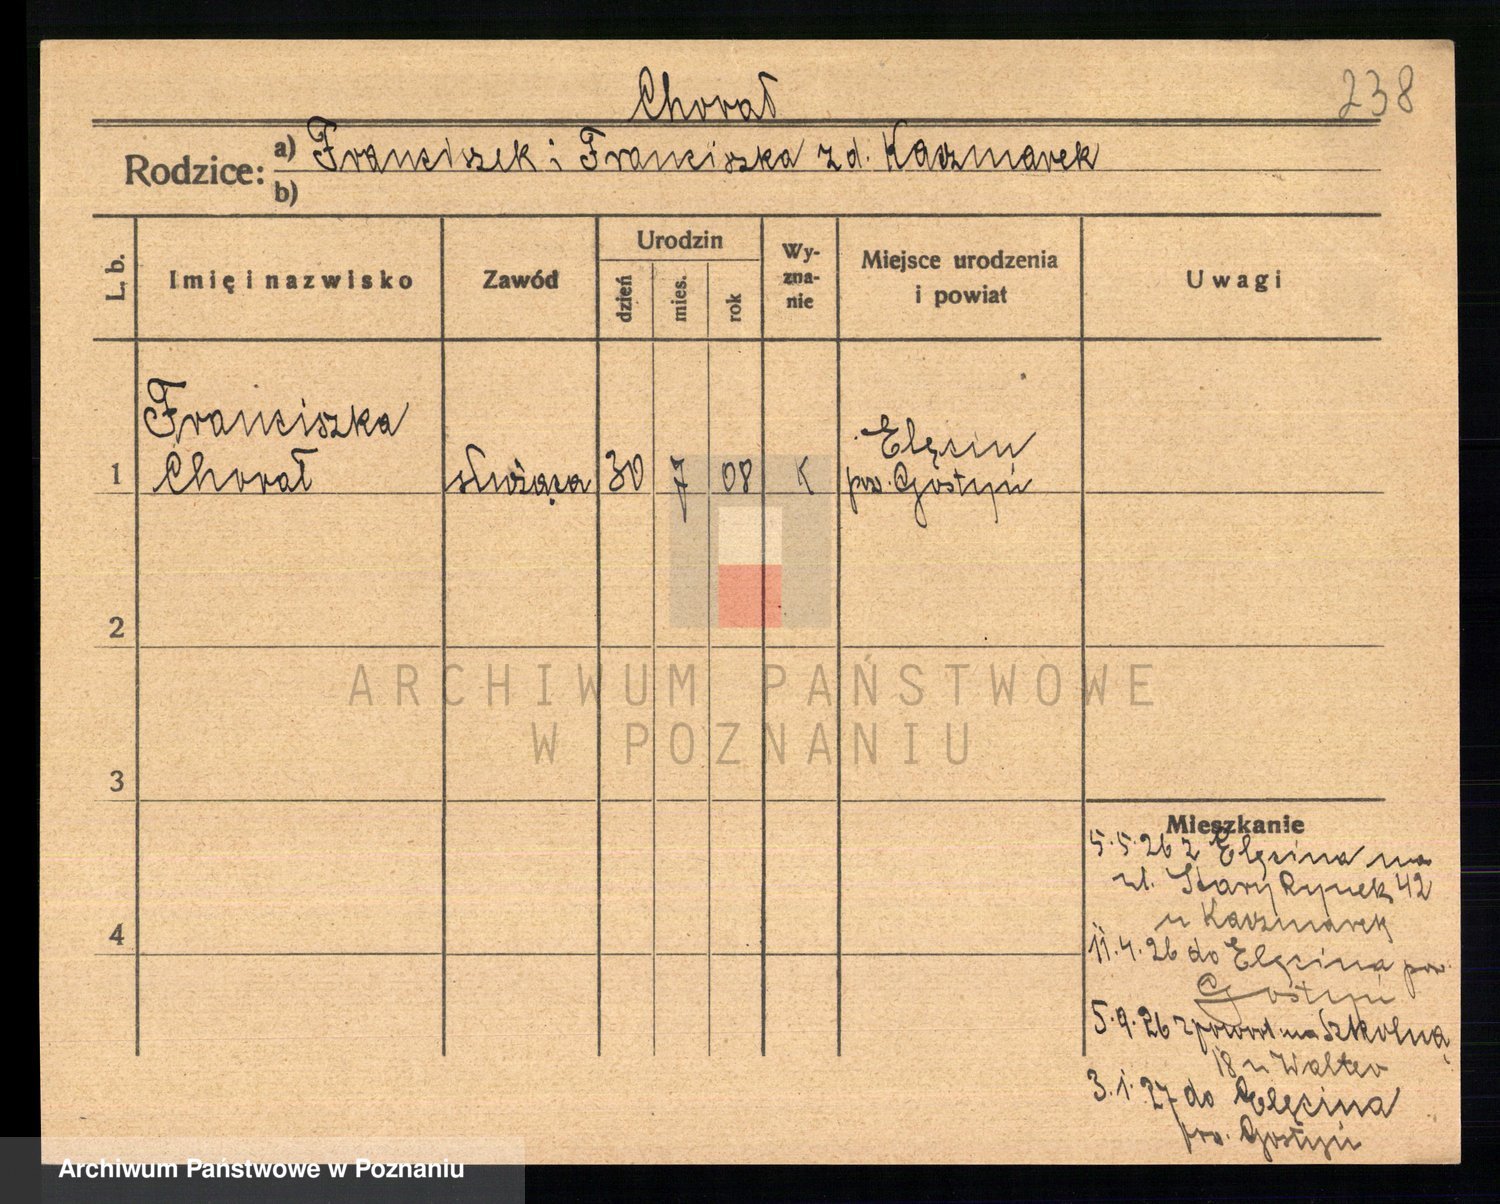 Chorał
238
Rodzice:
a) Franciszek i Franciszka z d. Kaczmarek
b)
L. b.
Imię i nazwisko
Zawód
Urodzin
dzień
mies.
rok
Wy-
zna-
nie
Miejsce urodzenia
i powiat
Uwagi
1
Franciszka
Chorał
służąca
30
7
08
K
Elęcin
pow. Gostyń
2
3
4
ARCHIWUM PAŃSTWOWE
W POZNANIU
Mieszkanie
5.5.26 z Elęcina na
ul. Stary Rynek 42
u Kaczmarek
11.4.26 do Elęcina pow.
Gostyń
5.9.26 z powrot na Szkolną
18 u Walter
3.1.27 do Elęcina
pow. Gostyń
Archiwum Państwowe w Poznaniu